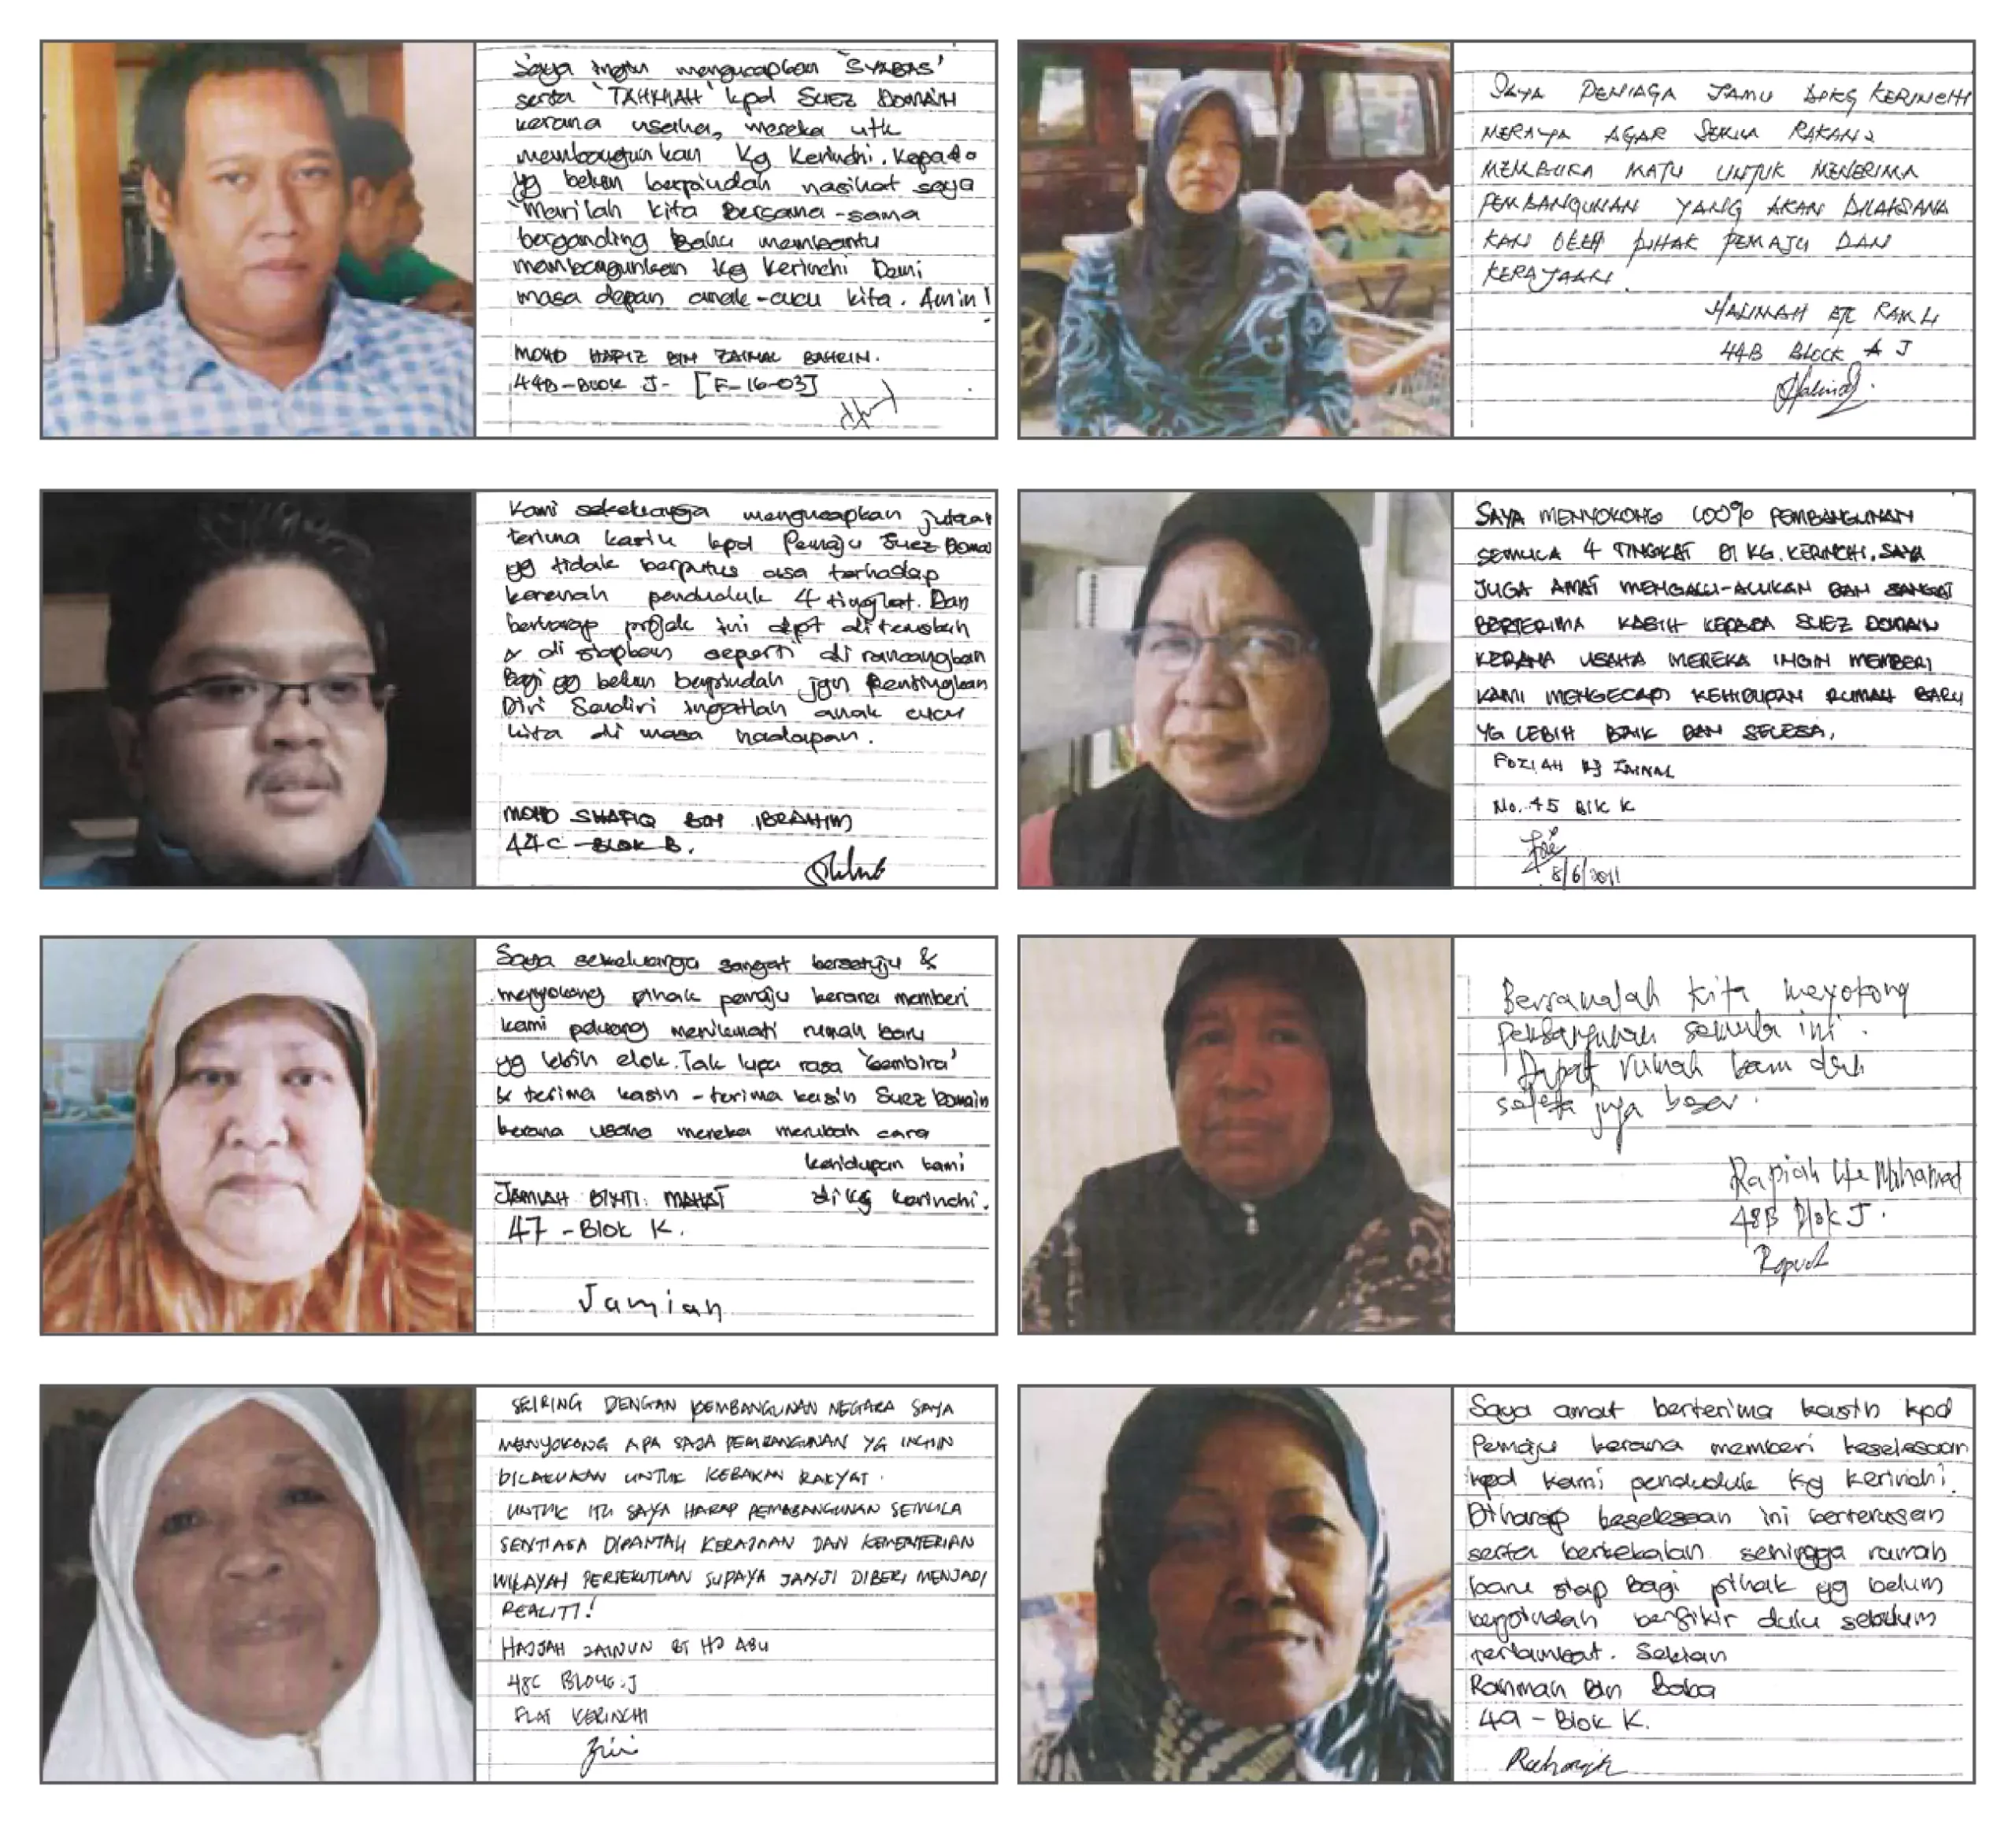 Saya ingin mengucapkan 'SYABAS'
serta 'TAHNIAH' kpd SUEZ DOMAIN
kerana usaha, mereka utk
membangunkan Kg Kerinchi. Kepada
yg belum berpindah nasihat saya
"Marilah kita Bersama-sama
berganding Bahu membantu
membangunkan kg Kerinchi Demi
masa depan anak-cucu kita. Amin!
MOHD HAFIZ BIN ZAINAL BAHRIN.
44B-BLOK J- [F-16-03]
SAYA PENIAGA JAMU DPKG KERINCHI
MERAYA AGAR SEMUA RAKAN2
MEMBUKA MATU UNTUK MENERIMA
PEMBANGUNAN YANG AKAN DILAKSANA
KAN OLEH PIHAK PEMAJU DAN
KERAJAAN.
HALIMAH BTE RAMLI
44B BLOCK A J
Kami sekeluarga mengucapkan jutaan
terima kasih kpd Pemaju Suez Domai
yg tidak berputus asa terhadap
kerenah penduduk 4 tingkat. Dan
berharap projek ini dpt diteruskan
& di siapkan seperti di rancangkan
Bagi yg belum berpindah jgn Pentingkan
Diri Sendiri Ingatlah anak cucu
kita di masa hadapan.
MOHD SHAFIQ BIN IBRAHIM
44C-BLOK B.
SAYA MENYOKONG 100% PEMBANGUNAN
SEMULA 4 TINGKAT DI KG. KERINCHI. SAYA
JUGA AMAT MENGALU-ALUKAN DAN SANGAT
BERTERIMA KASIH KEPADA SUEZ DOMAIN
KERANA USAHA MEREKA INGIN MEMBERI
KAMI MENGECAPI KEHIDUPAN RUMAH BARU
YG LEBIH BAIK DAN SELESA.
FOZIAH BJ ZAINAL
No. 45 BlK K
8/6/2011
Saya sekeluarga sangat bersetuju &
menyokong pihak pemaju kerana memberi
kami peluang menikmati rumah baru
yg lebih elok. Tak lupa rasa 'Gembira'
& terima kasih - terima kasih Suez Domain
kerana usaha mereka merubah cara
kehidupan kami
JAMIAH BINTI MAHAT di kg kerinchi.
47 - Blok K.
Jamiah
Bersamalah kita meyokong
pembangunan semula ini.
Dapat rumah kami dah
selesa juga besar.
Rapiah bte Mohamad
48B Blok J.
SEIRING DENGAN PEMBANGUNAN NEGARA SAYA
MENYOKONG APA SAJA PEMBANGUNAN YG INGIN
DILAKUKAN UNTUK KEBAKAN RAKYAT.
UNTUK ITU SAYA HARAP PEMBANGUNAN SEMULA
SENTIASA DIPANTAU KERAJAAN DAN KEMENTERIAN
WILAYAH PERSEKUTUAN SUPAYA JANJI DIBERI MENJADI
REALITI!
HAJJAH JAINUN BT HJ ABU
48C BLOCK J
FLAT KERINCHI
Saya amat berterima kasih kpd
Pemaju kerana memberi keselesaan
kpd kami penduduk Kg Kerinchi.
Diharap keselesaan ini berterusan
serta berkekalan sehingga rumah
baru siap Bagi pihak yg belum
berpindah berfikir dulu sebelum
terlambat. Sekian
Rahman Bin Baba
49 - Blok K.